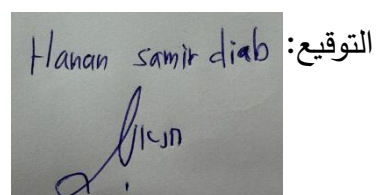 التوقيع: Hanan samir diab